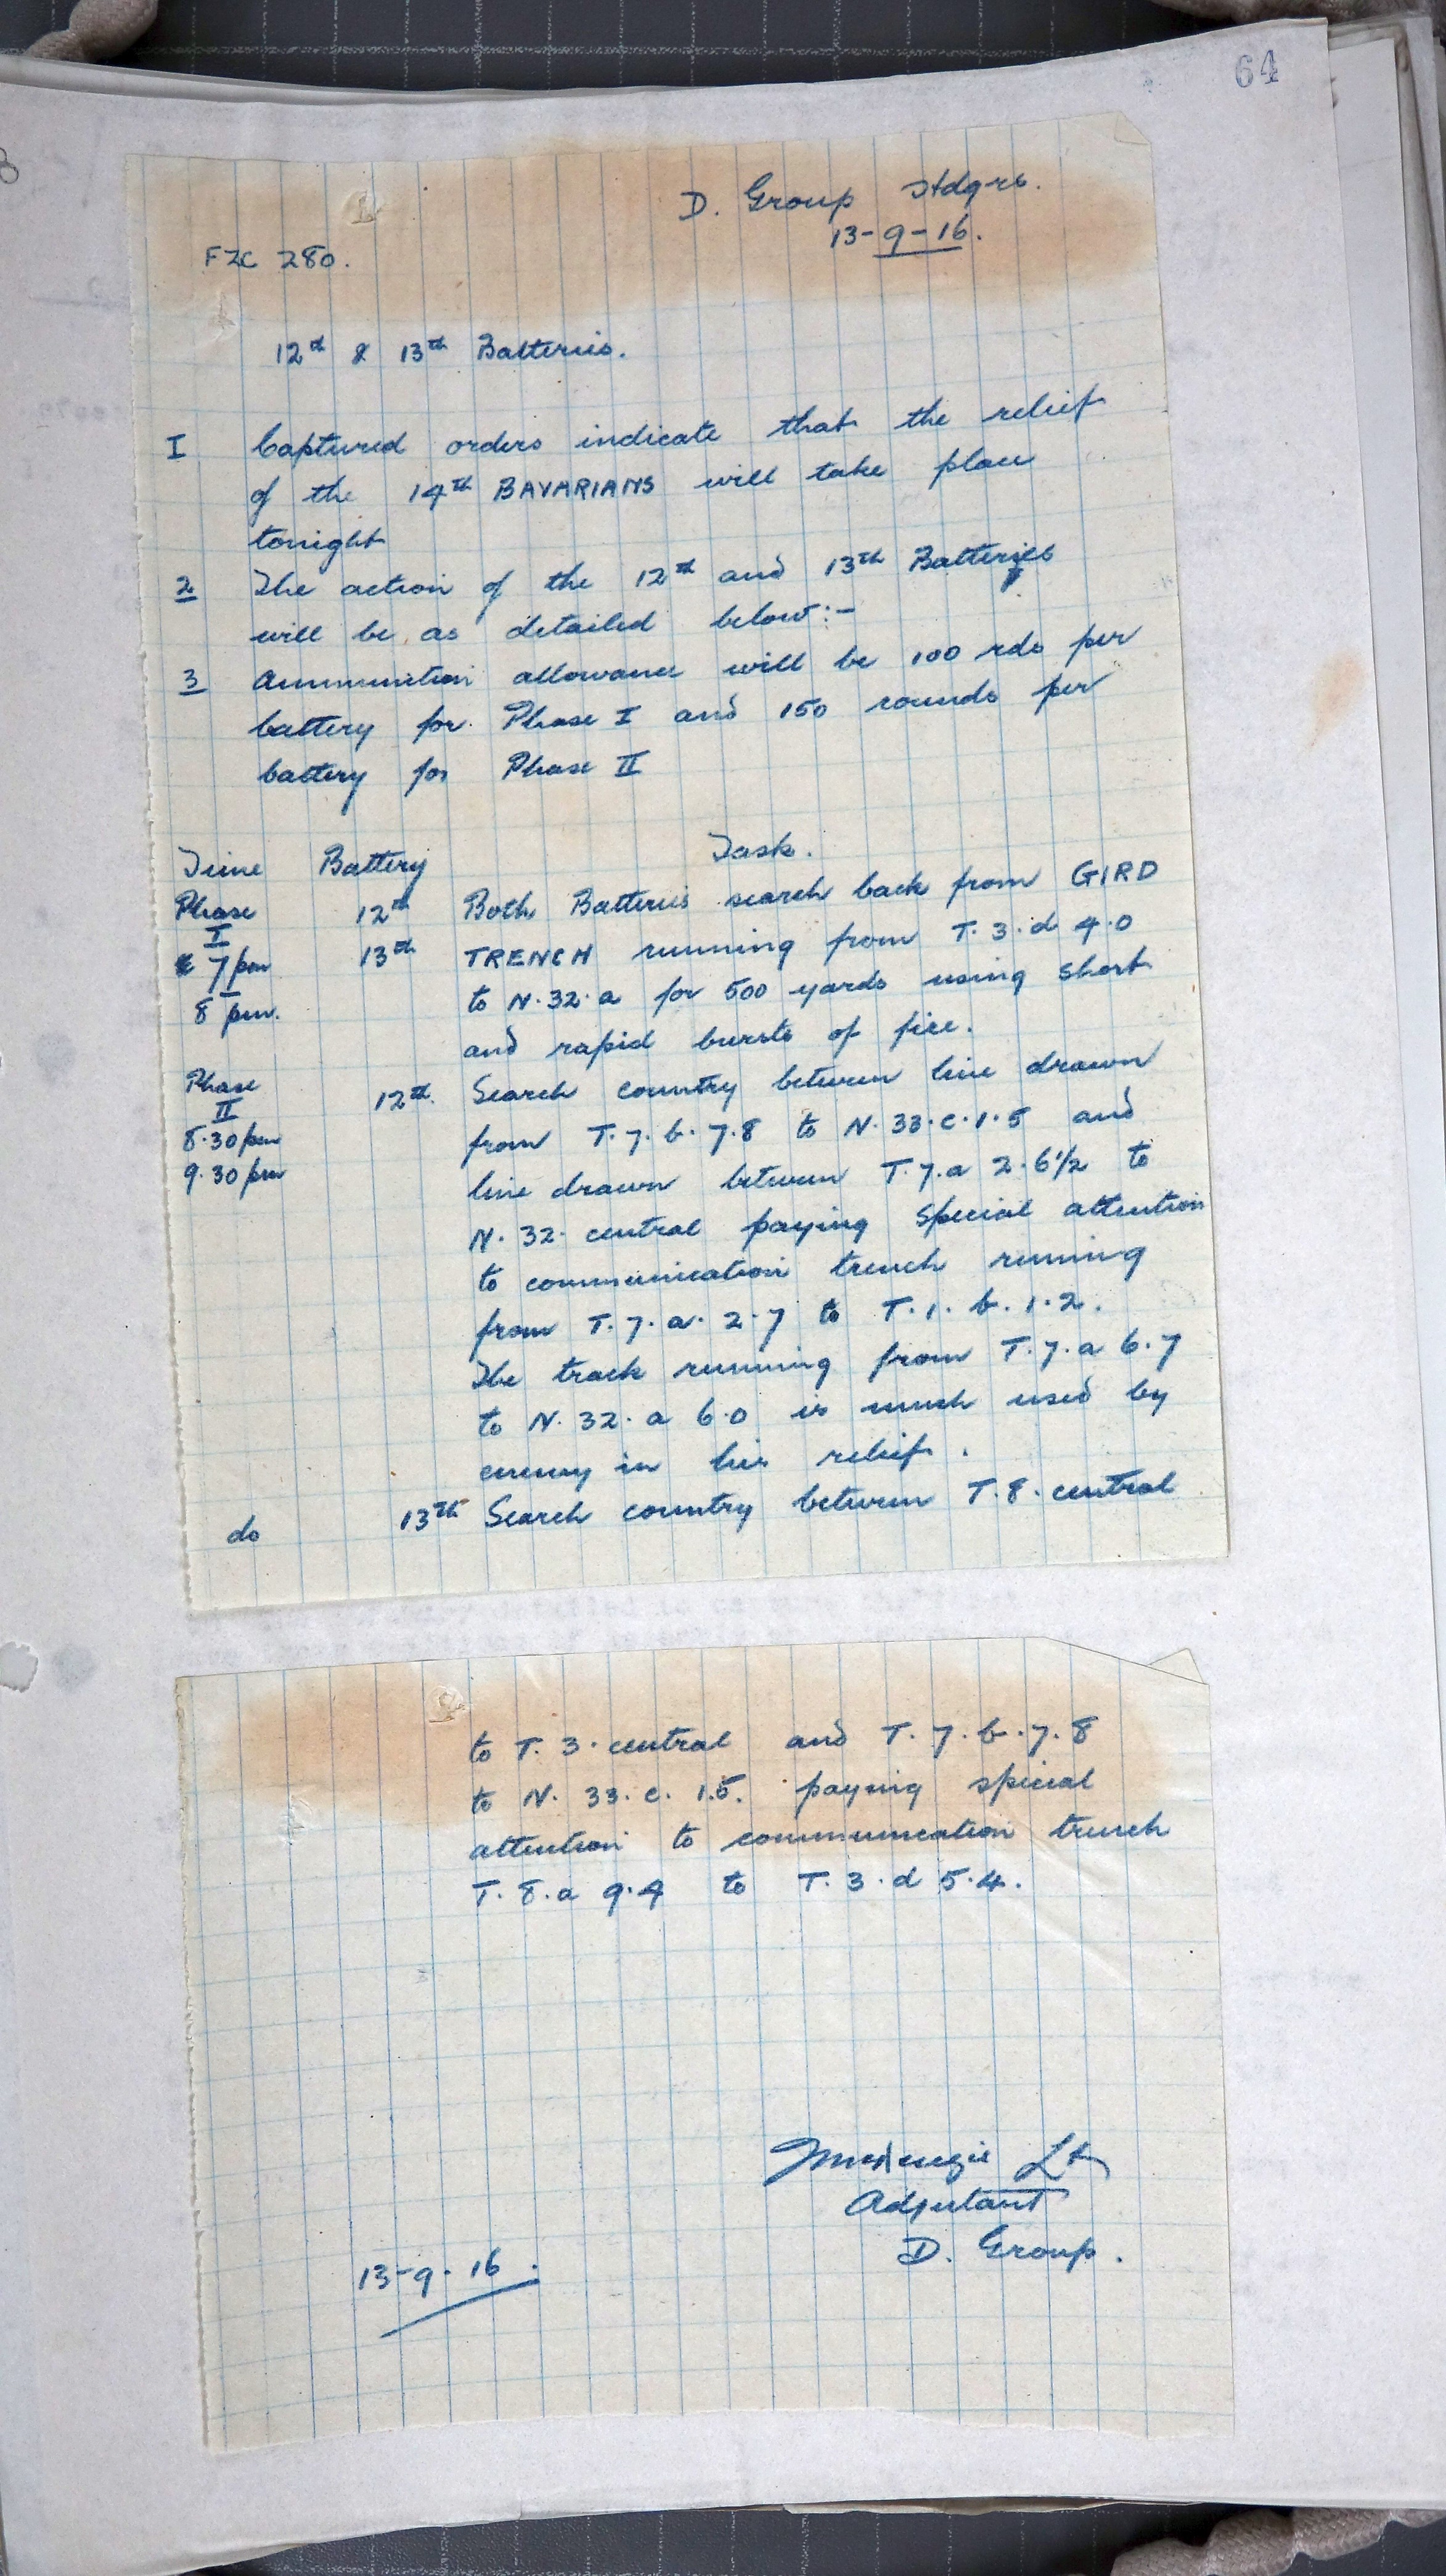 64
D. Group Hdqrs.
13-9-16.
FZC 280.
12th & 13th Batteries.
I Captured orders indicate that the relief
of the 14th BAVARIANS will take place
tonight
2 The action of the 12th and 13th Batteries
will be as detailed below:-
3 Ammunition allowance will be 100 rds per
battery for Phase I and 150 rounds per
battery for Phase II
Time Battery Task.
Phase 12th Both Batteries search back from GIRD
I
7 pm 13th TRENCH running from T.3.d 4.0
8 pm. to N.32.a for 500 yards using short
and rapid bursts of fire.
Phase 12th. Search country between line drawn
II
8.30 pm from T.7.b.7.8 to N.33.c.1.5 and
9.30 pm line drawn between T.7.a 2.6½ to
N.32.central paying special attention
to communication trench running
from T.7.a.2.7 to T.1.b.1.2.
The track running from T.7.a 6.7
to N.32.a 6.0 is much used by
enemy in his relief.
do 13th Search country between T.8.central
to T.3.central and T.7.b.7.8
to N.33.c.1.5. paying special
attention to communication trench
T.8.a 9.4 to T.3.d 5.4.
McKenzie Lt
Adjutant
D. Group.
13-9-16.